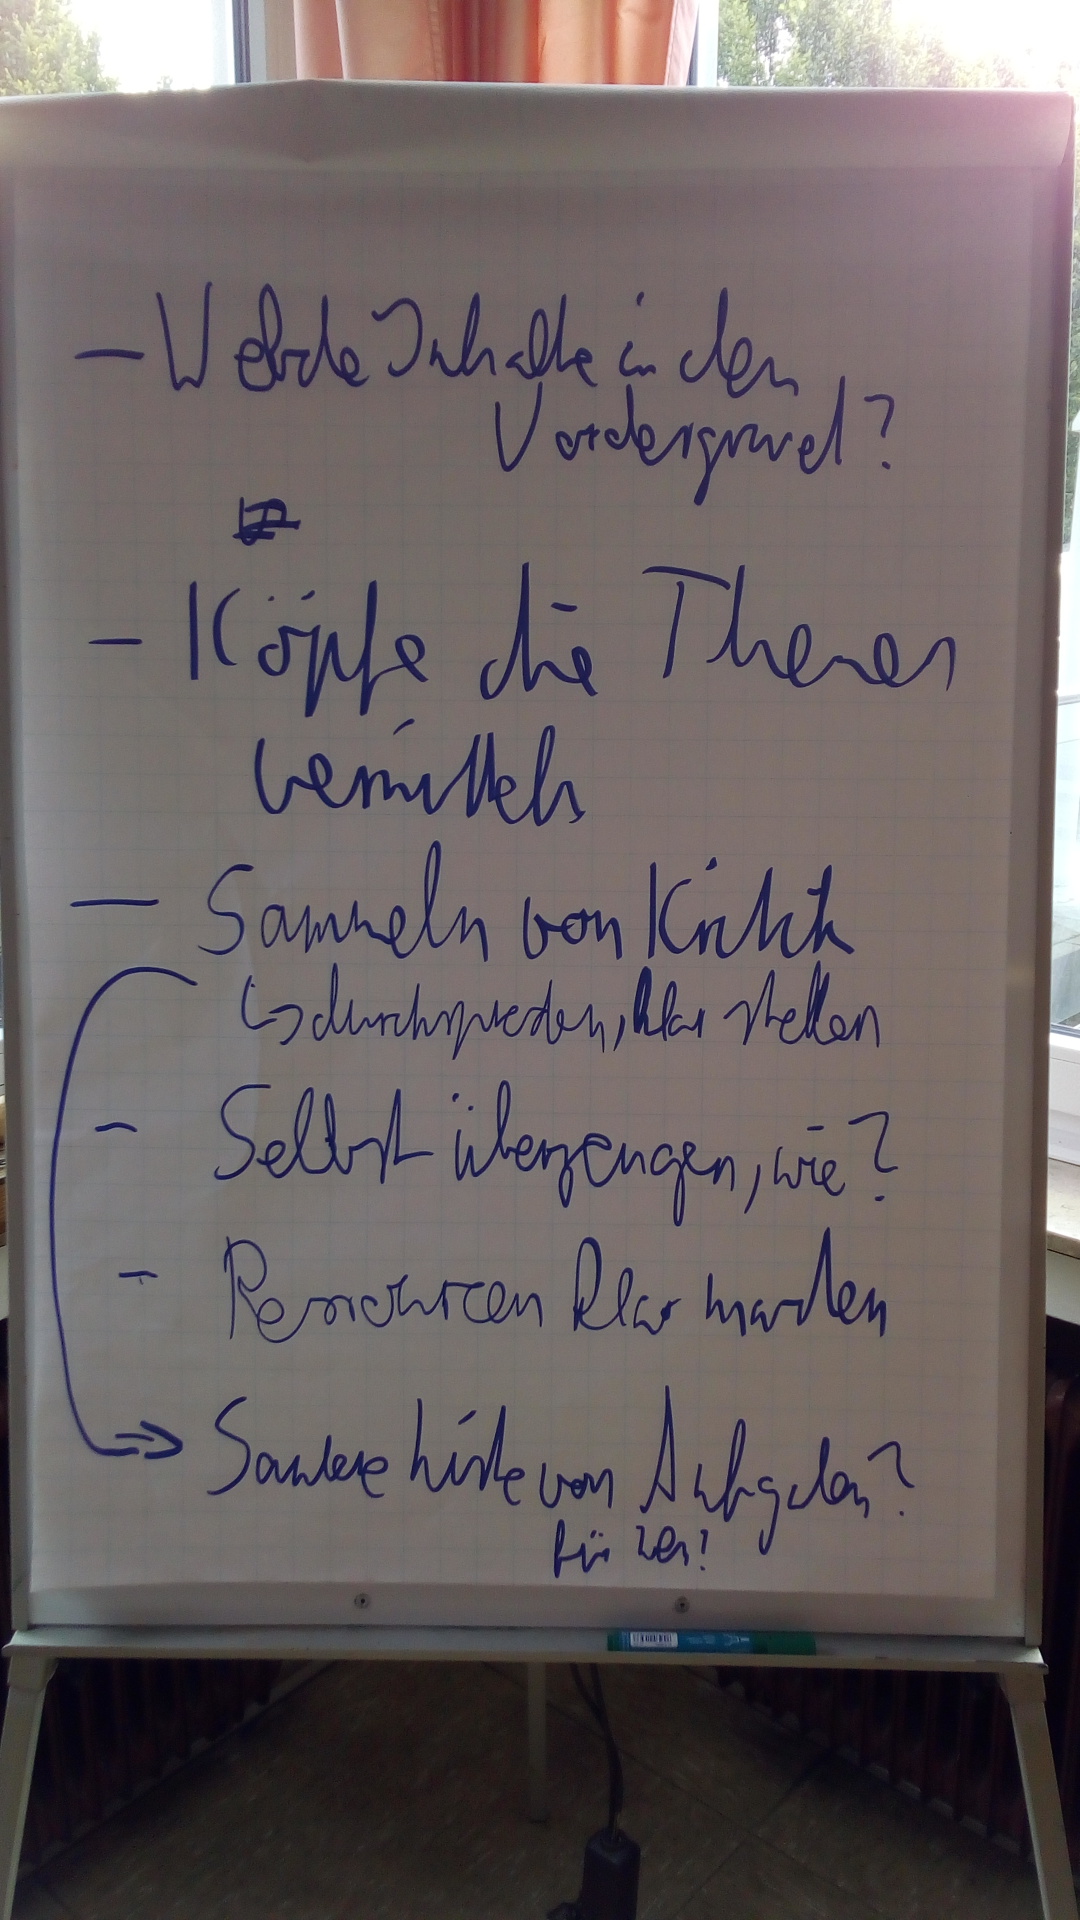 - Welche Inhalte in den
Vordergrund?
- Köpfe die Themen
vermitteln
- Sammeln von Kritik
↳ durchsprechen, klar stellen
- Selbst überzeugen, wie?
- Ressourcen klar machen
⇒ Saubere Liste von Aufgaben?
für wen?